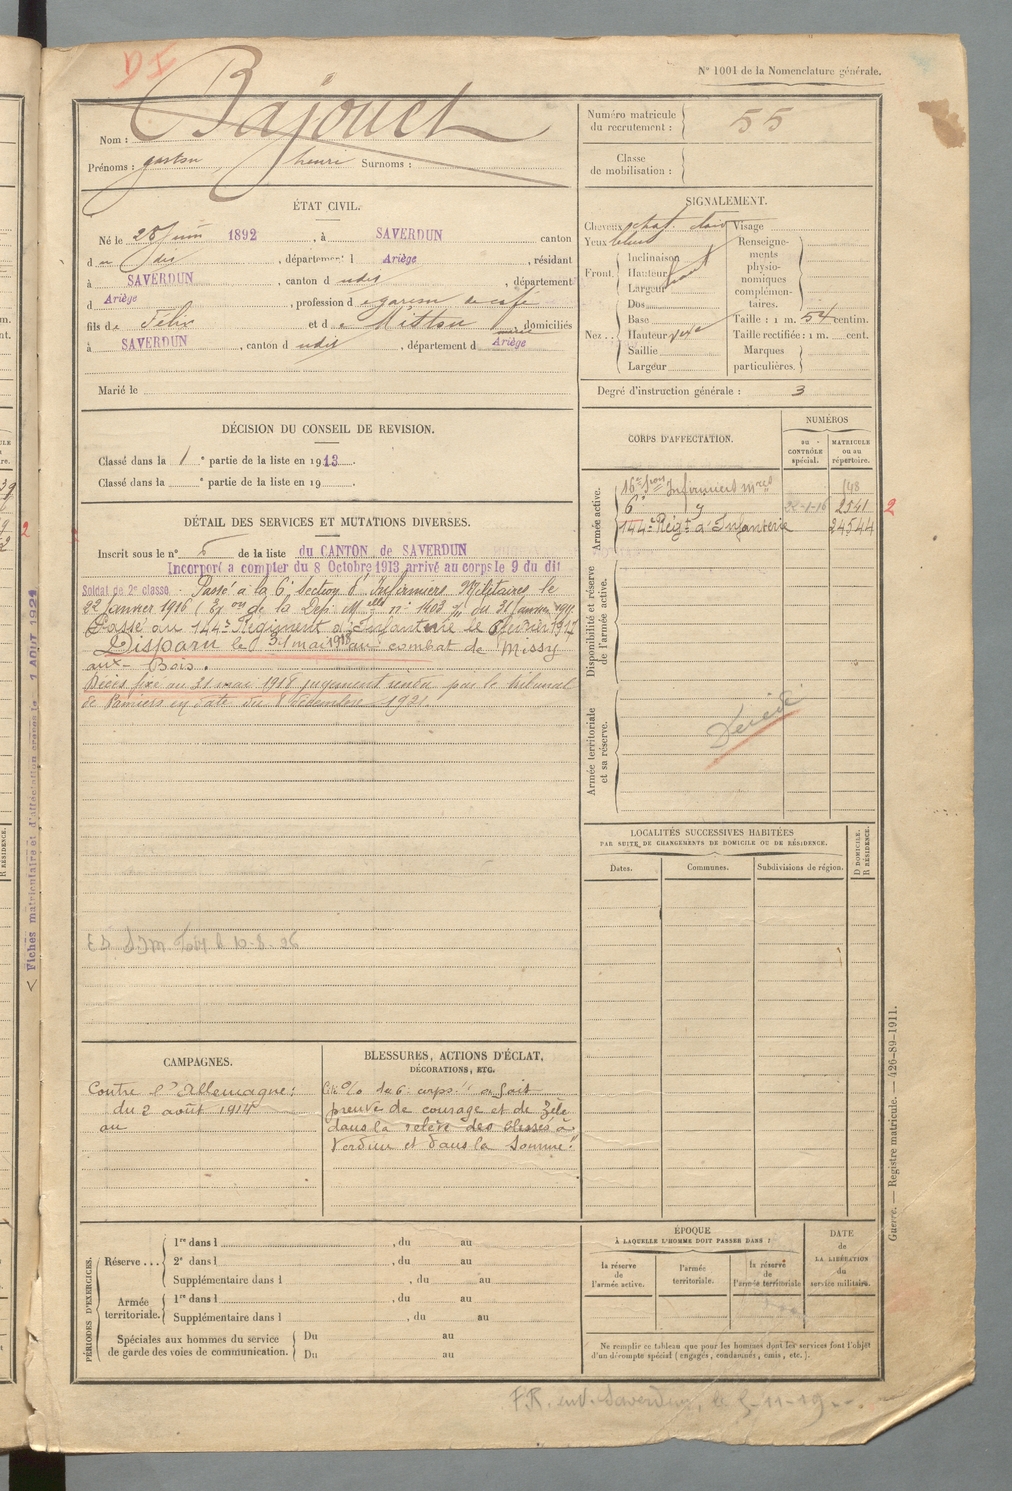 N° 1001 de la Nomenclature générale.
Nom : Bajouet
Prénoms : gaston henri Surnoms :
Numéro matricule du recrutement : 55
Classe de mobilisation :
ÉTAT CIVIL.
Né le 28 Juin 1892, à SAVERDUN canton
d dudit, département d Ariège, résidant
à SAVERDUN, canton d udit, département
d Ariège, profession d garçon de café
fils de Félix et de marie domiciliés
à SAVERDUN, canton d udit, département d Ariège
Marié le
SIGNALEMENT.
Cheveux chat. clair Visage
Yeux bleus
Renseignements physionomiques complémentaires.
Front. Inclinaison
Hauteur
Largeur
Nez.. Dos
Base
Hauteur
Saillie
Largeur
Taille : 1 m. 54 centim.
Taille rectifiée : 1 m. cent.
Marques particulières.
Degré d'instruction générale : 3
DÉCISION DU CONSEIL DE REVISION.
Classé dans la 1e partie de la liste en 1913.
Classé dans la e partie de la liste en 19
CORPS D'AFFECTATION.
NUMÉROS
au CONTRÔLE spécial.
MATRICULE ou au répertoire.
Armée active.
16e Son Infirmiers mres 148
6e 22-1-16 2541
144e Régt d'Infanterie 24544
2
Disponibilité et réserve de l'armée active.
Armée territoriale et sa réserve.
Décédé
DÉTAIL DES SERVICES ET MUTATIONS DIVERSES.
Inscrit sous le n° 5 de la liste du CANTON de SAVERDUN
Incorporé a compter du 8 Octobre 1913 arrivé au corps le 9 du dit
Soldat de 2e classe. Passé à la 6e Section d'Infirmiers Militaires le
22 Janvier 1916 de la Dep. Mlle n° 1403 du 31 Janvier
Passé au 144e Régiment d'Infanterie le 6 février 1917
Disparu le 31 mai 1918 au combat de Missy
aux-Bois.
Décès fixé au 31 mai 1918 jugement rendu par le tribunal
de Pamiers en date du 8 décembre 1921.
LOCALITÉS SUCCESSIVES HABITÉES
PAR SUITE DE CHANGEMENTS DE DOMICILE OU DE RÉSIDENCE.
Dates.
Communes.
Subdivisions de région.
D DOMICILE.
R RÉSIDENCE.
CAMPAGNES.
Contre l'Allemagne :
du 2 août 1914
au
BLESSURES, ACTIONS D'ÉCLAT,
DÉCORATIONS, ETC.
Cité O/o du 6e corps "a fait
preuve de courage et de zèle
dans la relève des blessés à
Verdun et dans la Somme"
PÉRIODES D'EXERCICES.
Réserve... 1re dans l , du au
2e dans l , du au
Supplémentaire dans l , du au
Armée territoriale. 1re dans l , du au
Supplémentaire dans l , du au
Spéciales aux hommes du service de garde des voies de communication. Du au
Du au
ÉPOQUE
À LAQUELLE L'HOMME DOIT PASSER DANS :
la réserve de l'armée active.
l'armée territoriale.
la réserve de l'armée territoriale
DATE de LA LIBÉRATION du service militaire.
Ne remplir ce tableau que pour les hommes dont les services font l'objet
d'un décompte spécial (engagés, condamnés, omis, etc.).
Guerre. — Registre matricule. — 426-89-1911.